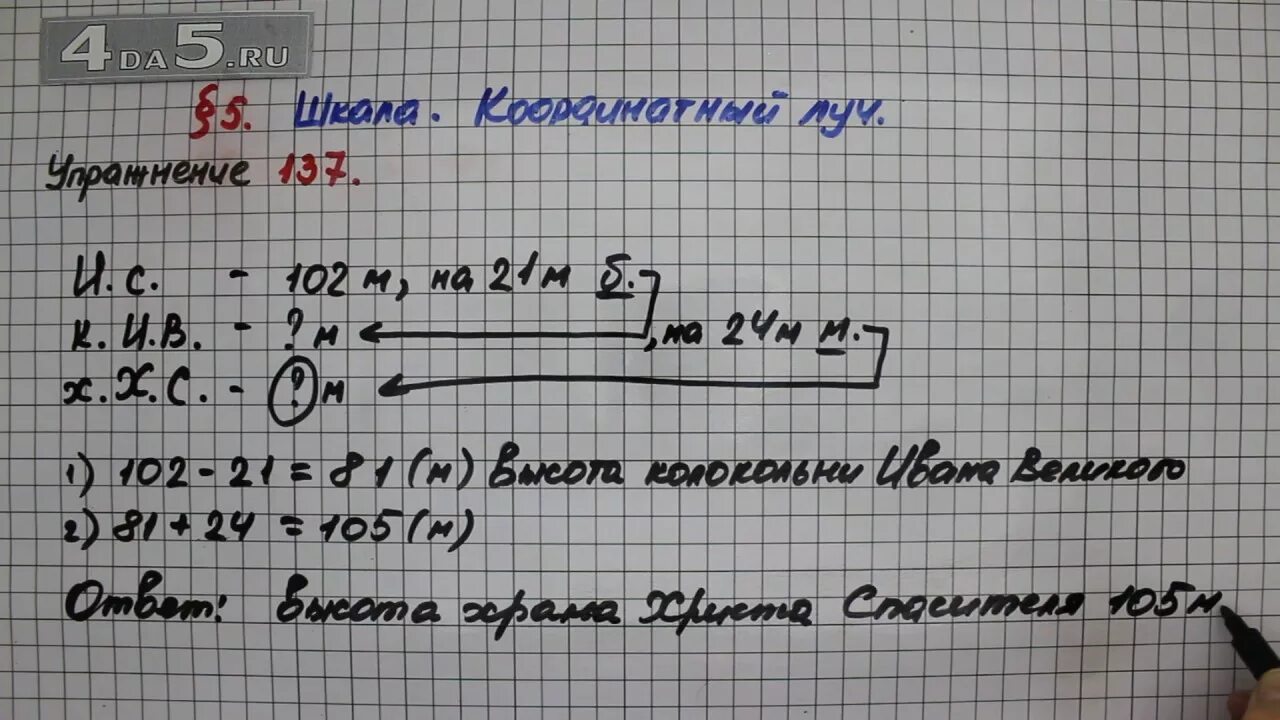 4DA5.RU
§5. Шкала. Координатный луч.
Упражнение 137.
И.С. - 102 м, на 21 м б.
к. И.В. - ? м, на 24 м м.
х. Х.С. - ? м
1) 102 - 21 = 81 (м) Высота колокольни Ивана Великого
2) 81 + 24 = 105 (м)
Ответ: высота храма Христа Спасителя 105 м